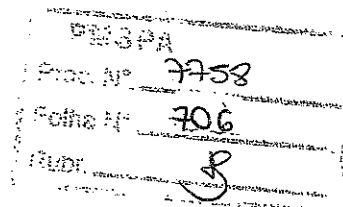 PMSPA
Proc. Nº 7758
Folha Nº 706
Rubr.